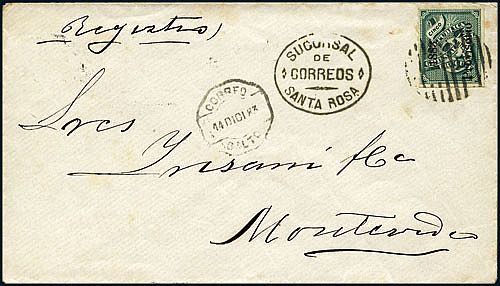 Registro
SUCURSAL
DE
CORREOS
SANTA ROSA
CORREO
14 DIC 83
SALTO
Sres
Trisani & Ca
Montevideo